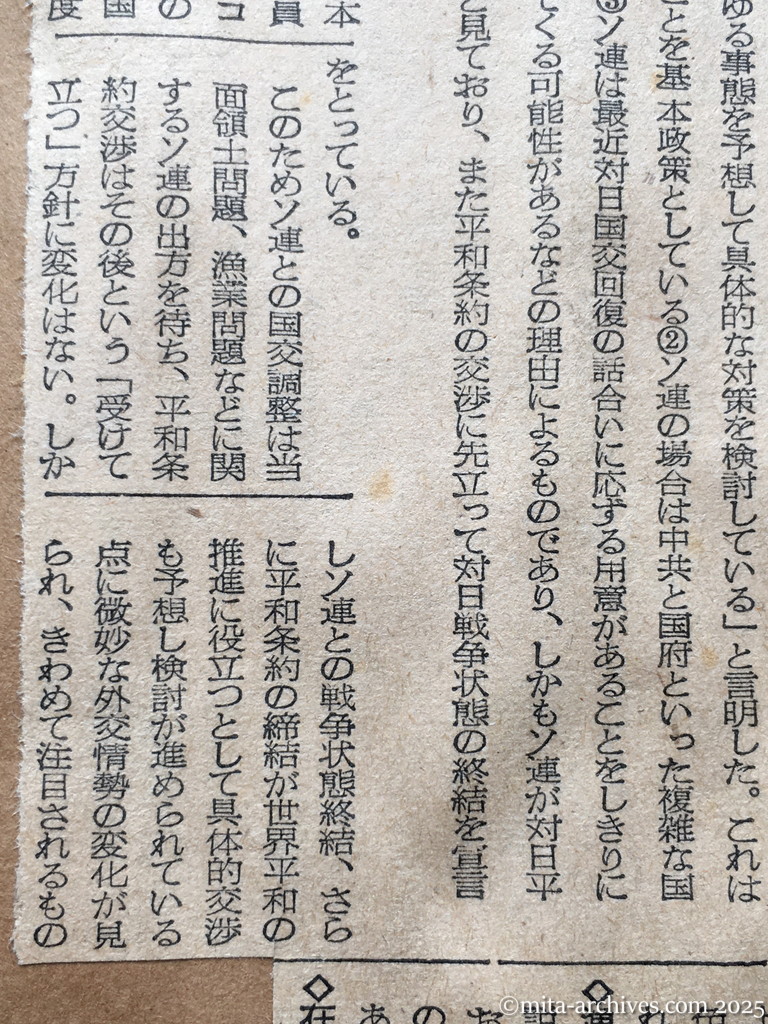 ゆる事態を予想して具体的な対策を検討している」と言明した。これは
ことを基本政策としている②ソ連の場合は中共と国府といった複雑な国
③ソ連は最近対日国交回復の話合いに応ずる用意があることをしきりに
てくる可能性があるなどの理由によるものであり、しかもソ連が対日平
と見ており、また平和条約の交渉に先立って対日戦争状態の終結を宣言
本
員
コ
の
国
度
をとっている。
このためソ連との国交調整は当
面領土問題、漁業問題などに関
するソ連の出方を待ち、平和条
約交渉はその後という「受けて
立つ」方針に変化はない。しか
しソ連との戦争状態終結、さら
に平和条約の締結が世界平和の
推進に役立つとして具体的交渉
も予想し検討が進められている
点に微妙な外交情勢の変化が見
られ、きわめて注目されるもの
◇
◇
お
の
あ
在
©mita-archives.com 2025